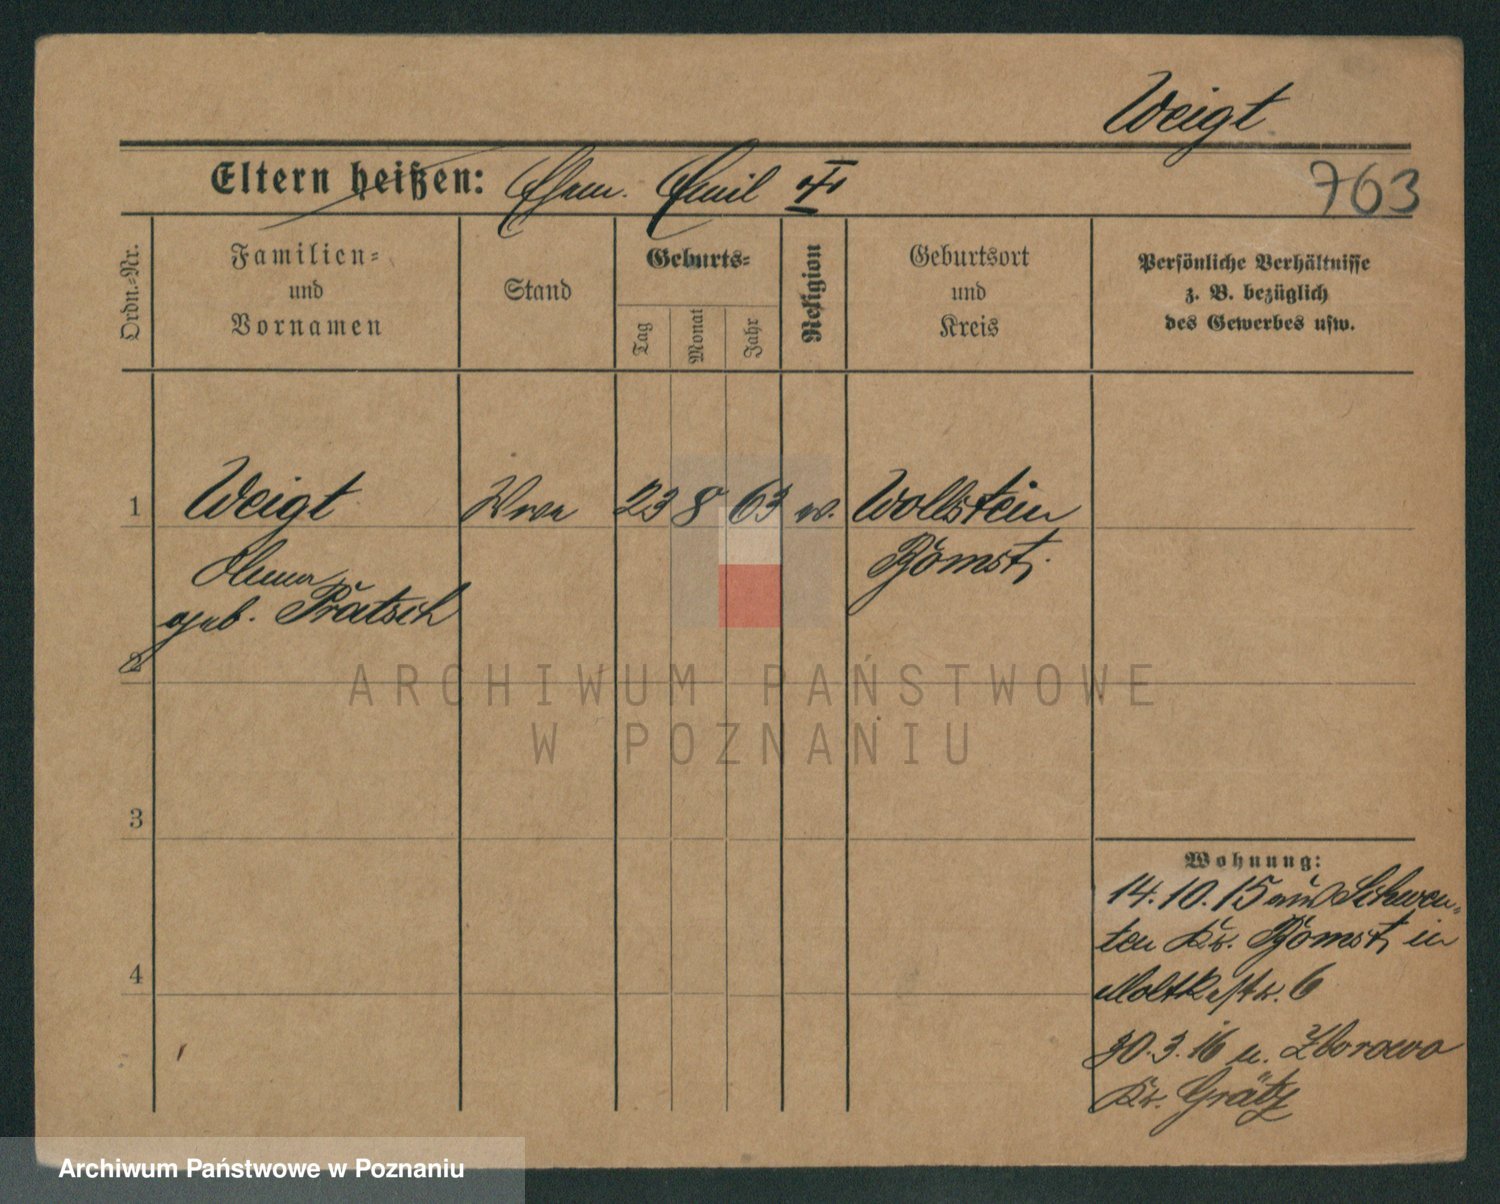 Weigt
Eltern heißen: Ehem. Emil
763
Ordn.-Nr.
Familien-
und
Vornamen
Stand
Geburts-
Tag
Monat
Jahr
Religion
Geburtsort
und
Kreis
Persönliche Verhältnisse
z. B. bezüglich
des Gewerbes usw.
1 Weigt Wwe 23 8 63 ev. Wollstein
Bomst
geb. Pratsch
2
3
4
Wohnung:
14.10.15 aus Schwen-
ten Kr. Bomst in
Moltkestr. 6
30.3.16 n. Zborowo
Kr. Grätz
ARCHIWUM PAŃSTWOWE
W POZNANIU
Archiwum Państwowe w Poznaniu